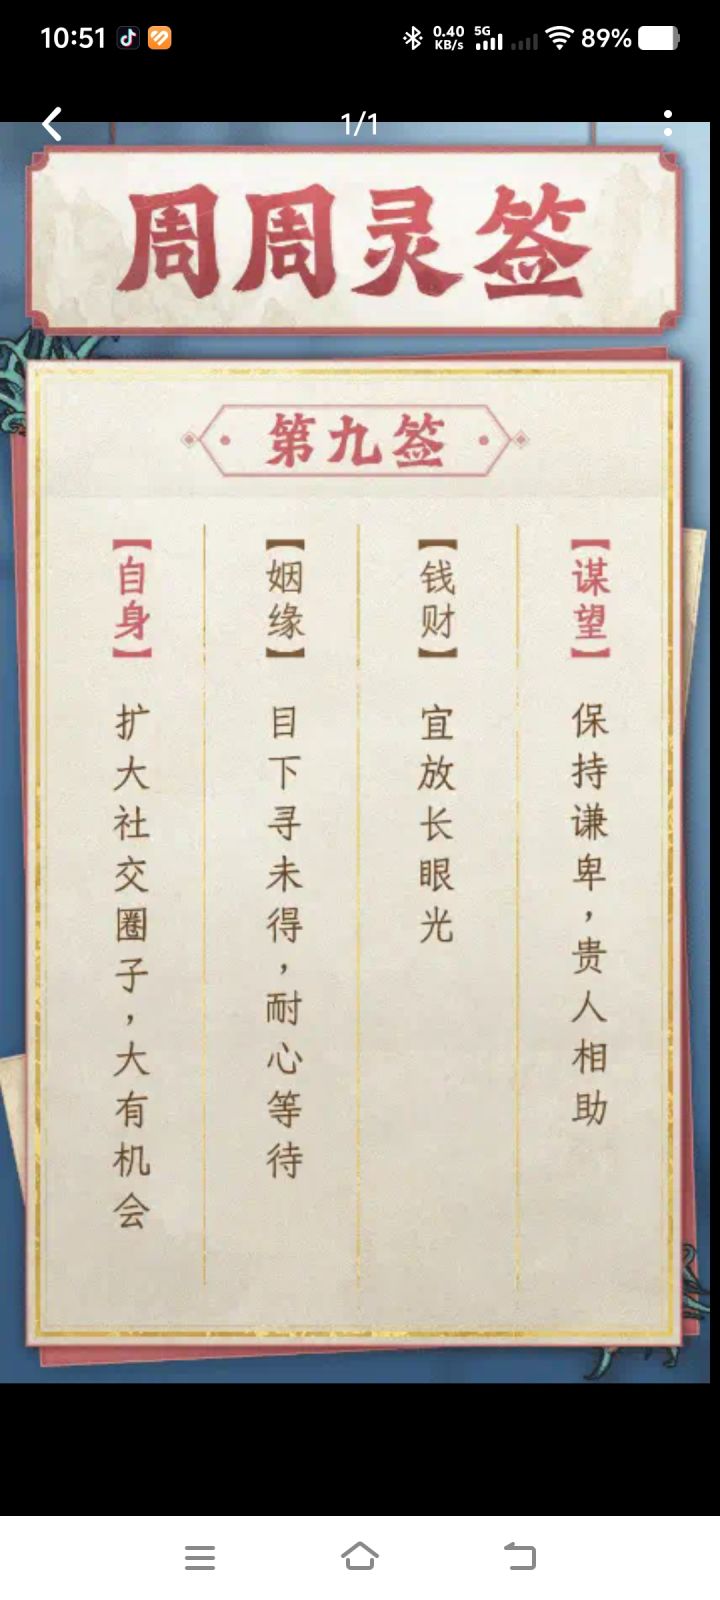 10:51
0.40
KB/s
5G
89%
1/1
周周灵签
第九签
【谋望】
保持谦卑，贵人相助
【钱财】
宜放长眼光
【姻缘】
目下寻未得，耐心等待
【自身】
扩大社交圈子，大有机会